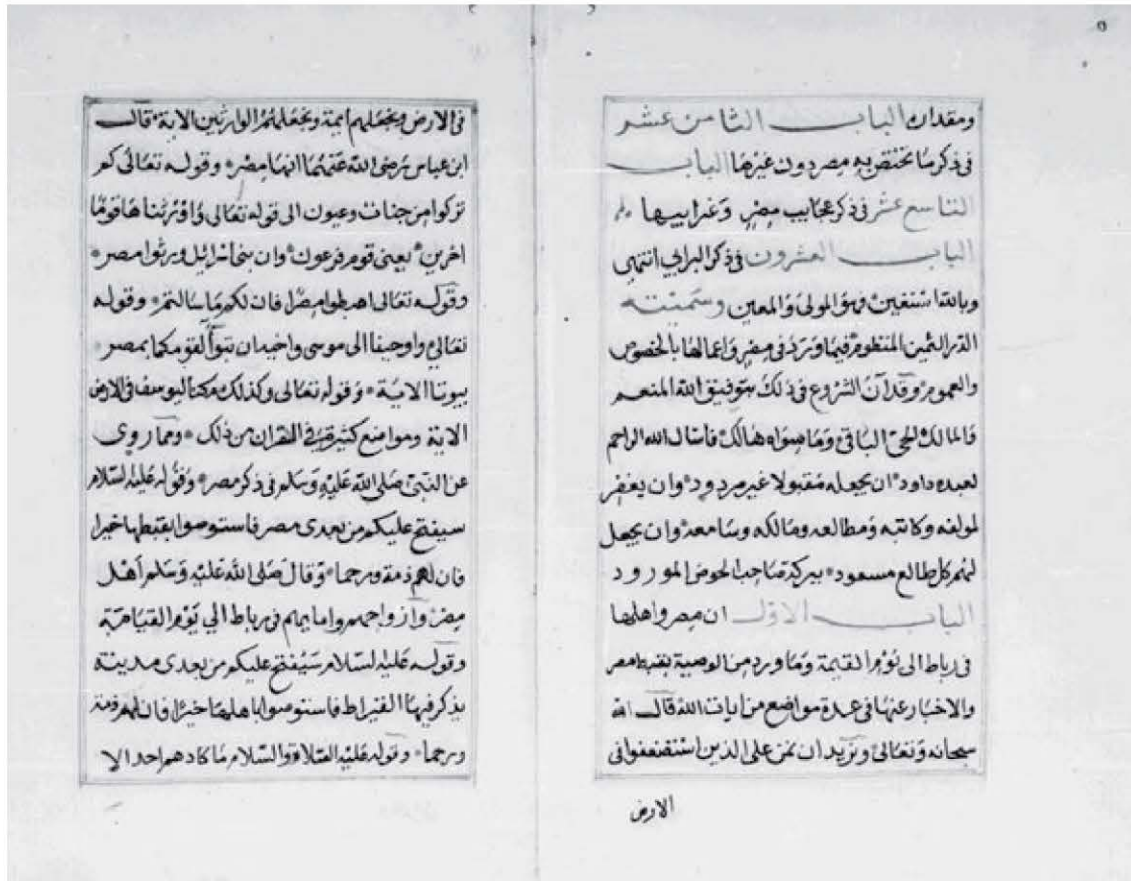 ٥
ومقداره الباب الثامن عشر
في ذكر ما تختص به مصر دون غيرها الباب
التاسع عشر في ذكر عجايب مصر وغرايبها
الباب العشرون في ذكر البرابي انتهى
وبالله استعين فهو المولى والمعين وسميته
الدر الثمين المنظوم فيما ورد في مصر واعمالها بالخصوص
والعموم وقد آن الشروع في ذلك بتوفيق الله المنعم
المالك الحي الباقي وما سواه هالك فاسال الله الراحم
لعبده داود ان يجعله مقبولا غير مردود وان يغفر
لمولفه وكاتبه ومطالعه ومالكه وسامعه وان يجعل
لهم كل طالع مسعود ببركة صاحب الحوض المورود
الباب الاول ان مصر واهلها
في رباط الى يوم القيمة وما ورد من الوصية بقبط مصر
والاخبار عنها في عدة مواضع من ايات الله قال الله
سبحانه وتعالى ونريد ان نمن على الذين استضعفوا في
الارض
في الارض ونجعلهم ايمة ونجعلهم الوارثين الاية قال
ابن عباس رضي الله عنهما انها مصر وقوله تعالى كم
تركوا من جنات وعيون الى قوله تعالى واورثناها قوما
اخرين يعني قوم فرعون وان بني اسرائيل ورثوا مصر
وقوله تعالى اهبطوا مصرا فان لكم ما سالتم وقوله
تعالى واوحينا الى موسى واخيه ان تبوآ لقومكما بمصر
بيوتا الاية وقوله تعالى وكذلك مكنا ليوسف في الارض
الاية ومواضع كثيرة في القران من ذلك ومما روي
عن النبي صلى الله عليه وسلم في ذكر مصر وقوله عليه السلام
سيفتح عليكم من بعدى مصر فاستوصوا بقبطها خيرا
فان لهم ذمة ورحما وقال صلى الله عليه وسلم اهل
مصر وازواجهم وامايهم في رباط الي يوم القيامة
وقوله عليه السلام سيفتح عليكم من بعدى مدينة
يذكر فيها القيراط فاستوصوا باهلها خيرا فان لهم ذمة
ورحما وقوله عليه الصلاة والسلام ما كادهم احد الا